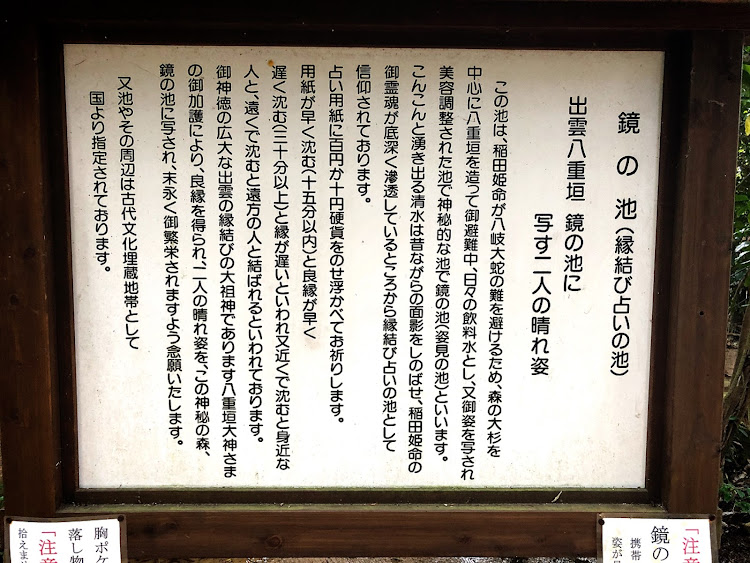 鏡の池(縁結び占いの池)
出雲八重垣 鏡の池に
写す二人の晴れ姿
この池は、稲田姫命が八岐大蛇の難を避けるため、森の大杉を
中心に八重垣を造って御避難中、日々の飲料水とし、又御姿を写され
美容調整された池で神秘的な池で鏡の池(姿見の池)といいます。
こんこんと湧き出る清水は昔ながらの面影をしのばせ、稲田姫命の
御霊魂が底深く滲透しているところから縁結び占いの池として
信仰されております。
占い用紙に百円か十円硬貨をのせ浮かべてお祈りします。
用紙が早く沈む(十五分以内)と良縁が早く
遅く沈む(三十分以上)と縁が遅いといわれ又近くで沈むと身近な
人と、遠くで沈むと遠方の人と結ばれるといわれております。
御神徳の広大な出雲の縁結びの大祖神であります八重垣大神さま
の御加護により、良縁を得られ、二人の晴れ姿を、この神秘の森、
鏡の池に写され、末永く御繁栄されますよう念願いたします。
又池やその周辺は古代文化埋蔵地帯として
国より指定されております。
「注意
鏡の
携帯
姿が
胸ポケ
落し物
「注意
拾えま